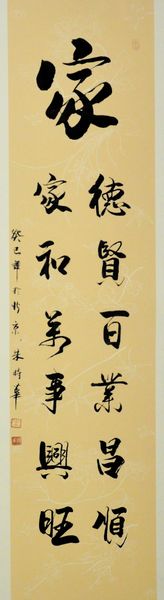 家
德賢百業昌順
家和萬事興旺
癸巳 於 京 朱 華